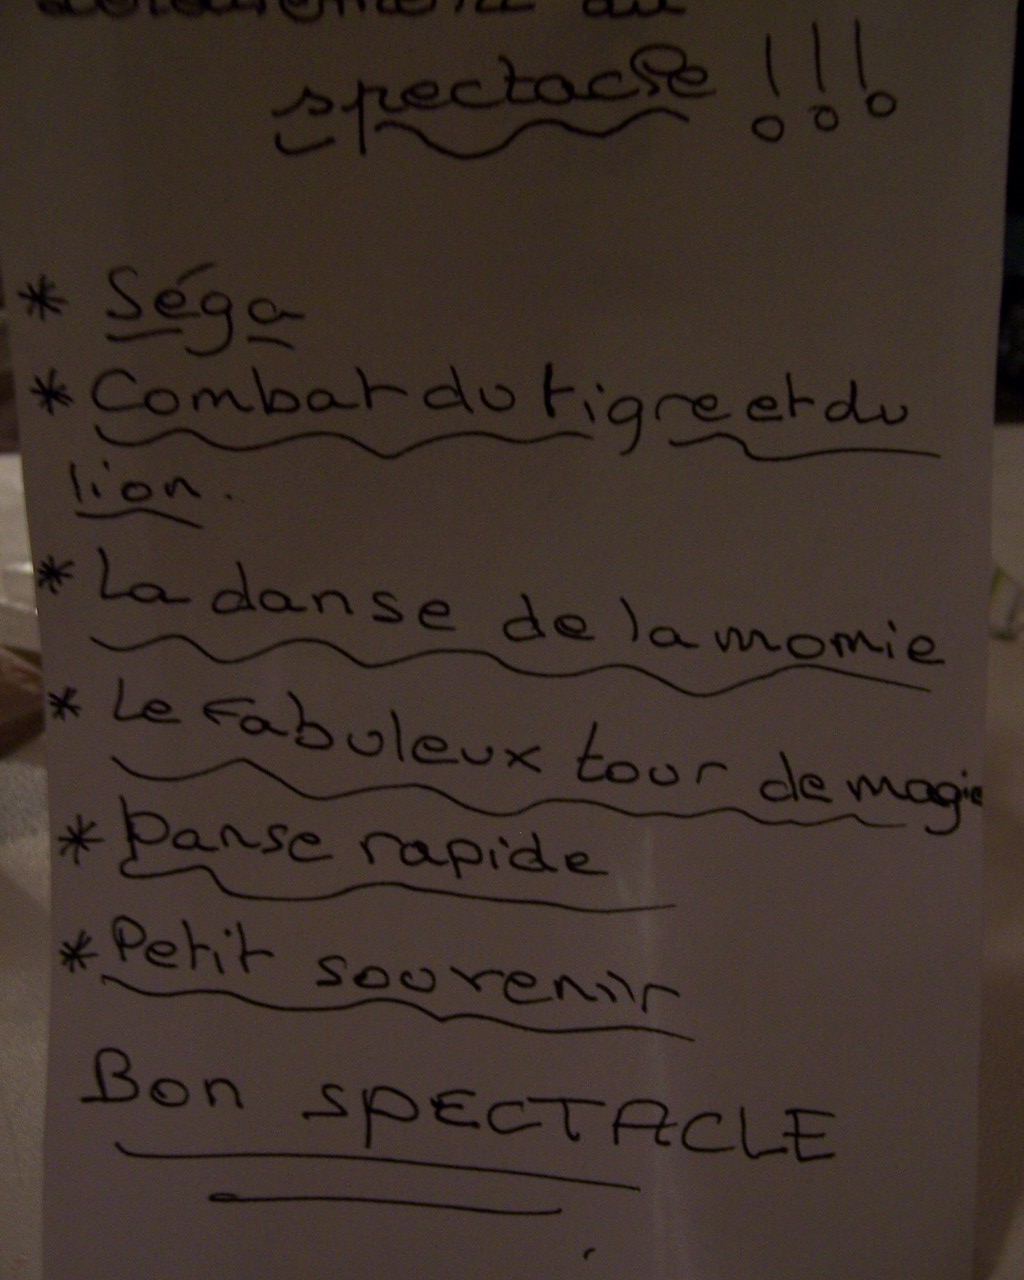 spectacle !!!
* Séga
* Combat du tigre et du
lion.
* La danse de la momie
* Le fabuleux tour de magie
* Danse rapide
* Petit souvenir
Bon SPECTACLE